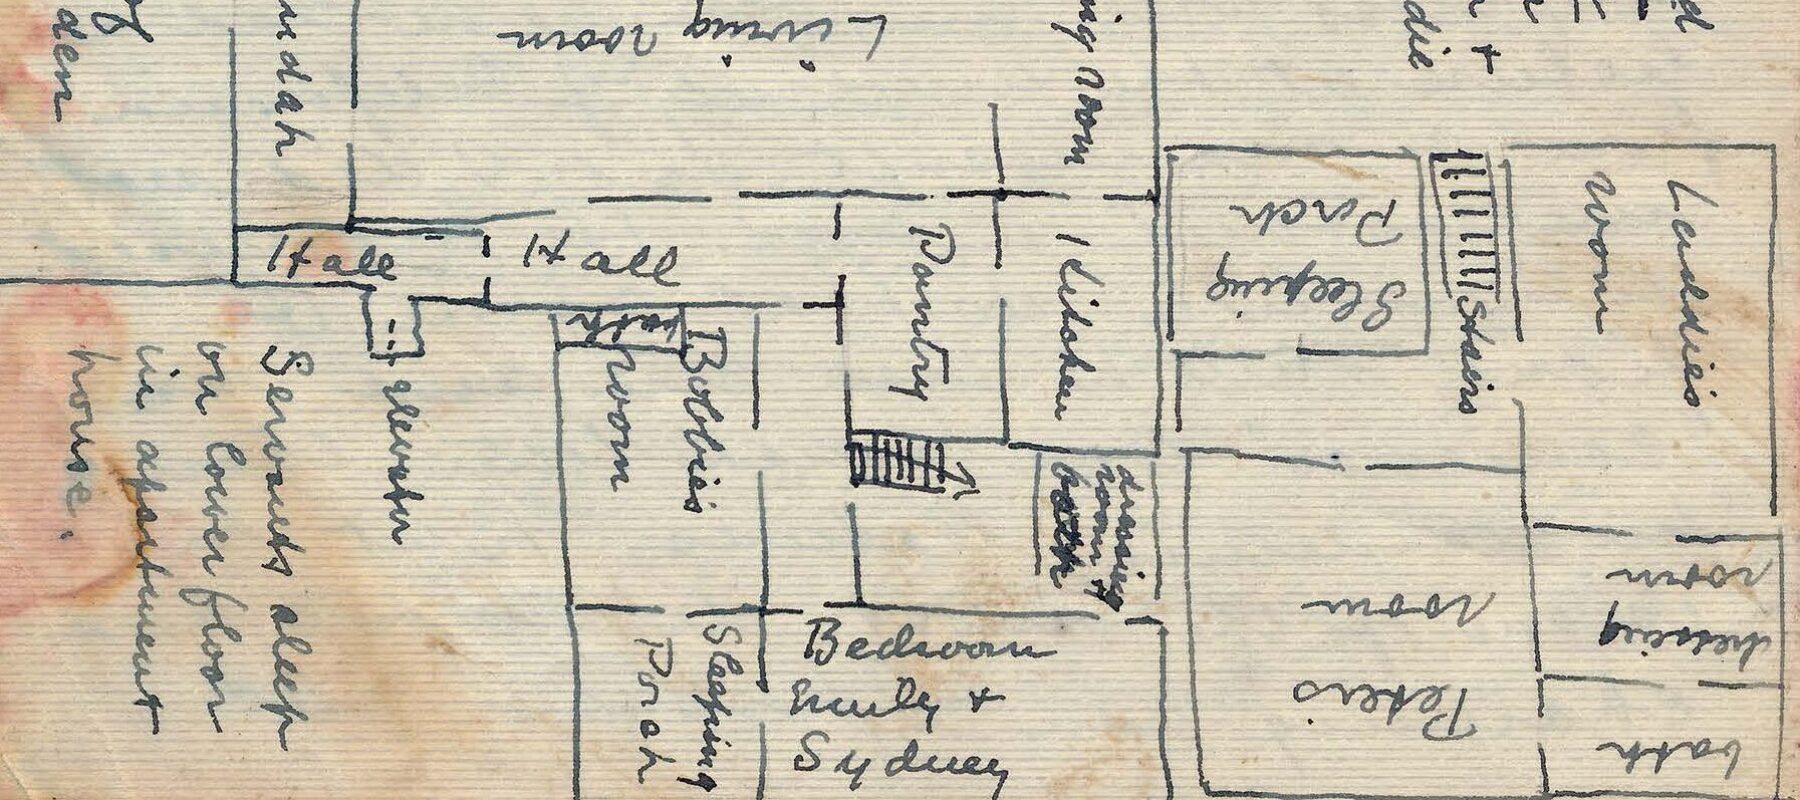 den
ndah
Living room
ng room
die
r +
d
Hall
Hall
Pantry
Kitchen
Sleeping
Porch
Stairs
Laddie's
room
elevator
bath
Bobbie's
room
dressing
room +
bath
Servants sleep
on lower floor
in apartment
house.
Sleeping
Porch
Bedroom
Emily +
Sydney
Peter's
room
dressing
room
bath